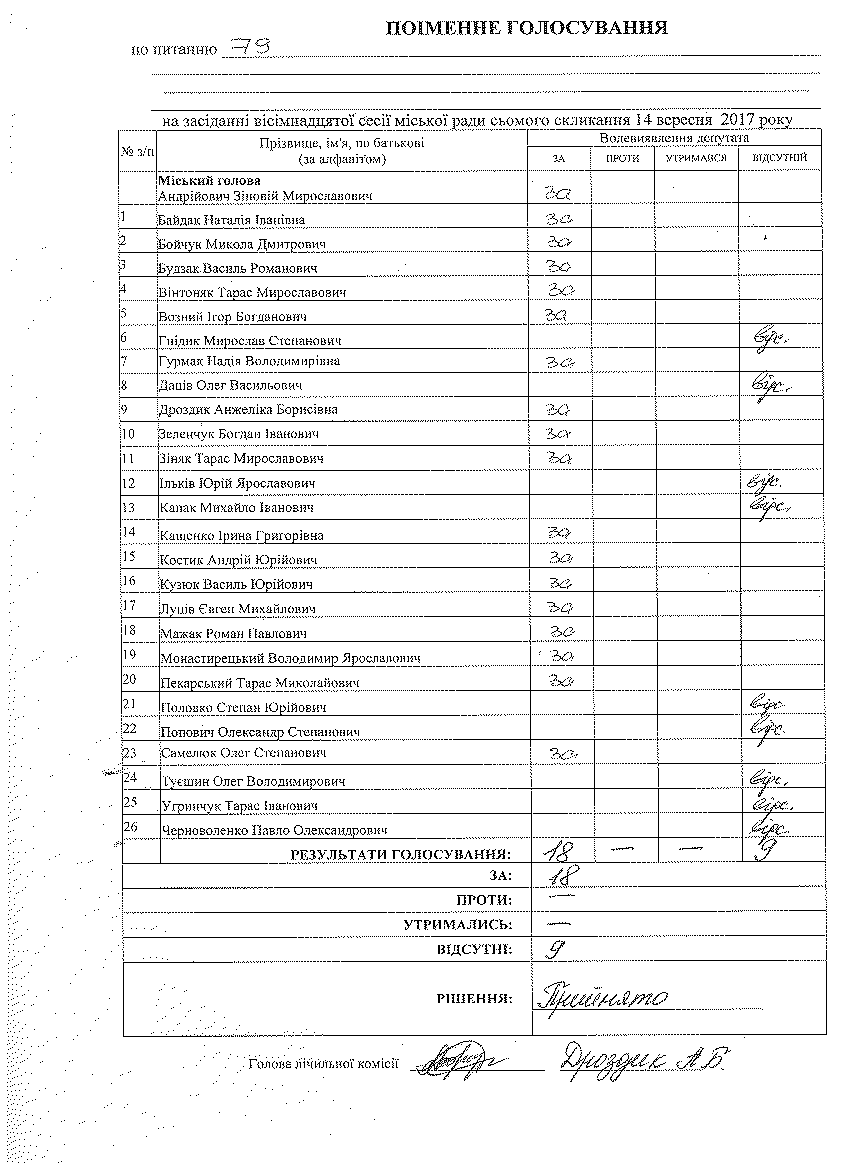 ПОІМЕННЕ ГОЛОСУВАННЯ
по питанню 79
на засіданні вісімнадцятої сесії міської ради сьомого скликання 14 вересня 2017 року
№ з/п Прізвище, ім'я, по батькові (за алфавітом) Волевиявлення депутата
ЗА ПРОТИ УТРИМАВСЯ ВІДСУТНІЙ
Міський голова
Андрійович Зіновій Мирославович за
1 Байдак Наталія Іванівна за
2 Бойчук Микола Дмитрович за
3 Будзак Василь Романович за
4 Вінтоняк Тарас Мирославович за
5 Возний Ігор Богданович за
6 Гнідик Мирослав Степанович відс.
7 Гурмак Надія Володимирівна за
8 Даців Олег Васильович відс.
9 Дроздик Анжеліка Борисівна за
10 Зеленчук Богдан Іванович за
11 Зіняк Тарас Мирославович за
12 Ільків Юрій Ярославович відс.
13 Капак Михайло Іванович відс.
14 Кащенко Ірина Григорівна за
15 Костик Андрій Юрійович за
16 Кузюк Василь Юрійович за
17 Луців Євген Михайлович за
18 Мажак Роман Павлович за
19 Монастирецький Володимир Ярославович за
20 Пекарський Тарас Миколайович за
21 Половко Степан Юрійович відс
22 Попович Олександр Степанович відс.
23 Самелюк Олег Степанович за
24 Туєшин Олег Володимирович відс.
25 Угринчук Тарас Іванович відс.
26 Черноволенко Павло Олександрович відс.
РЕЗУЛЬТАТИ ГОЛОСУВАННЯ: 18 — — 9
ЗА: 18
ПРОТИ: —
УТРИМАЛИСЬ: —
ВІДСУТНІ: 9
РІШЕННЯ: Прийнято
Голова лічильної комісії Дроздик А.Б.